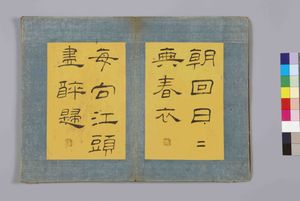 朝回日〻
典春衣
每向江頭
盡醉歸